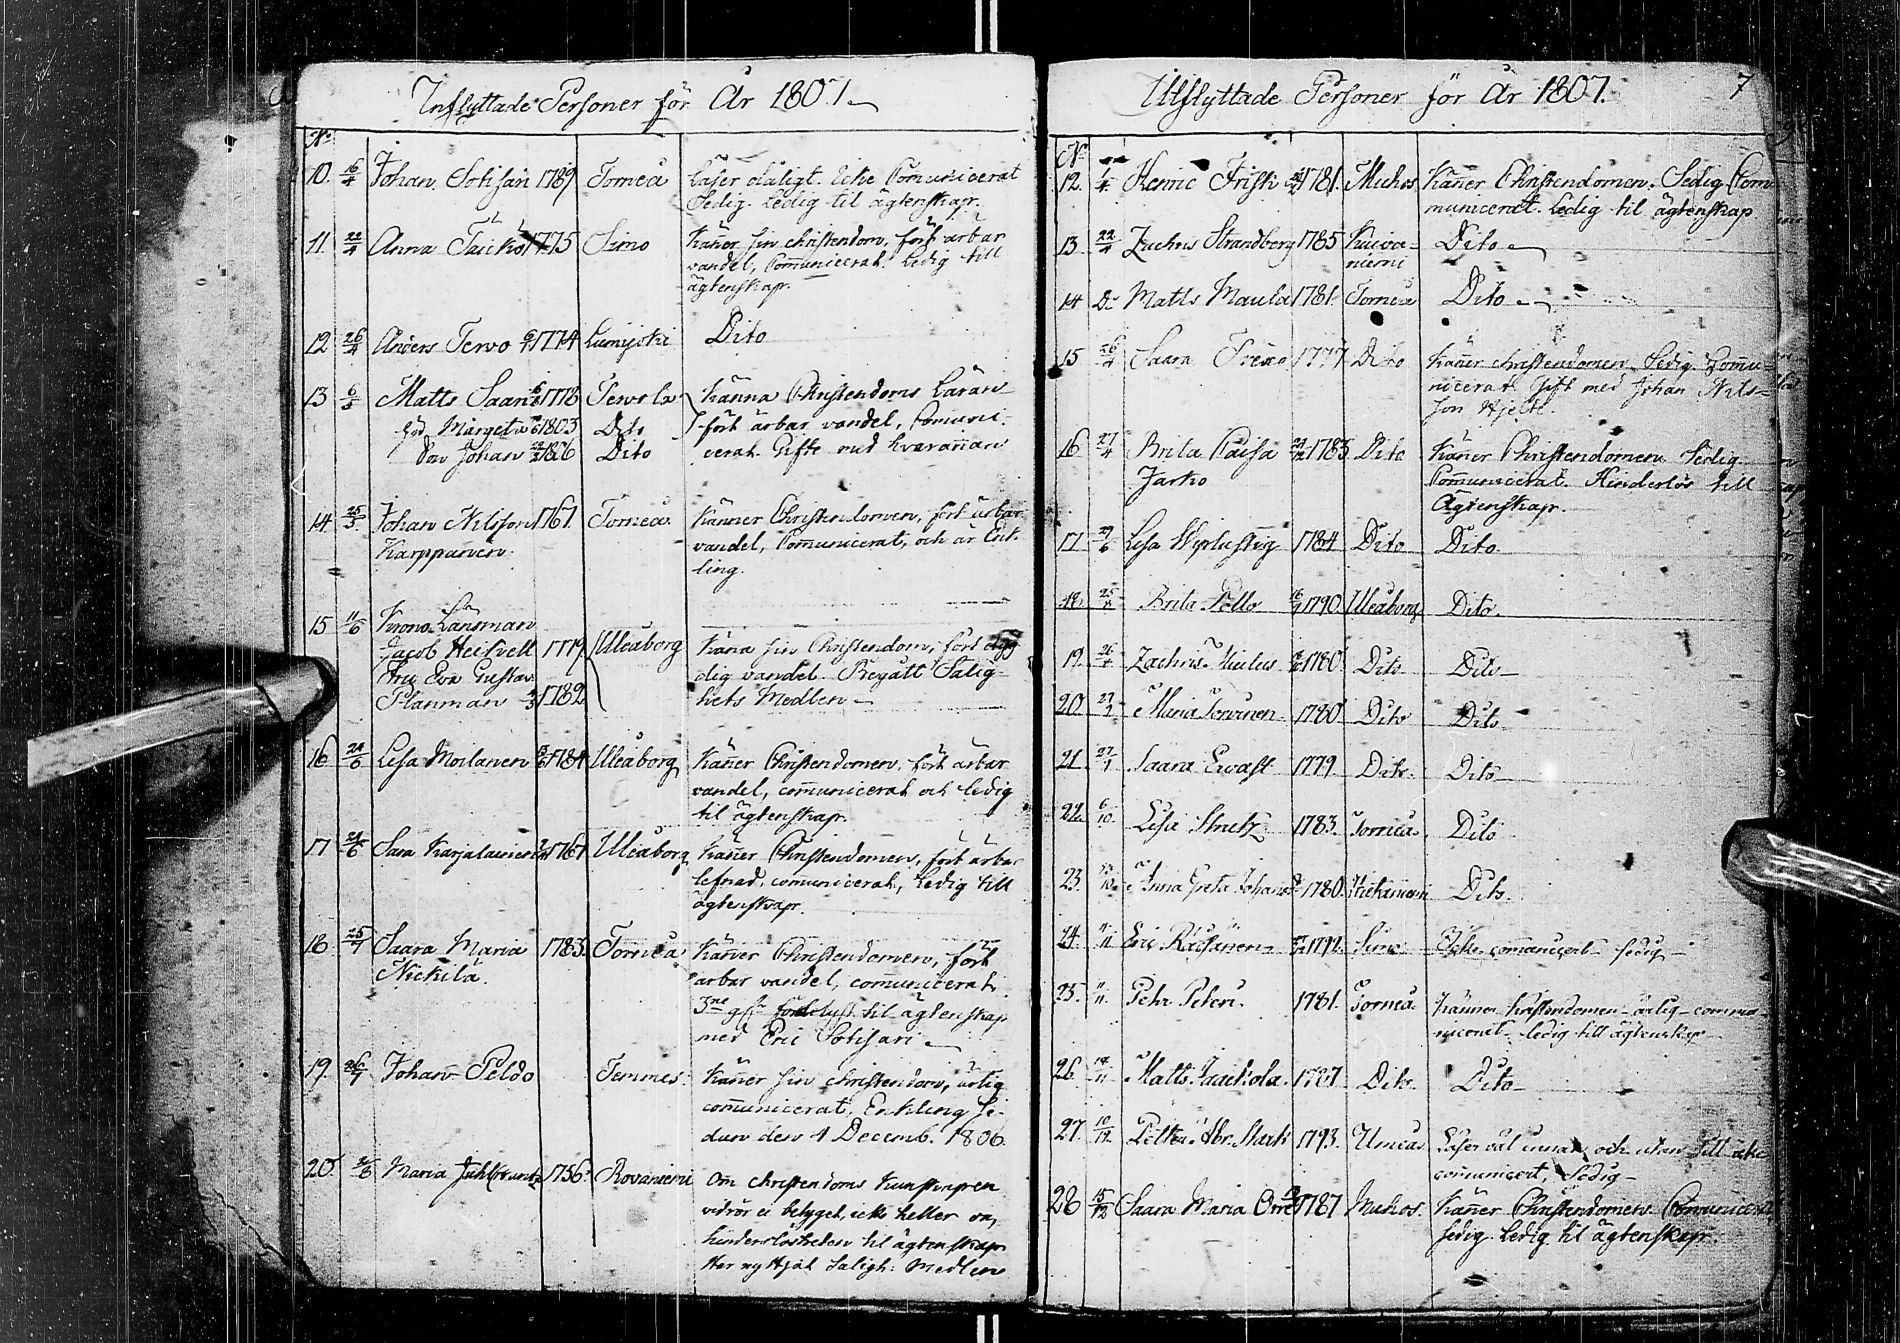 Inflyttade Personer för År 1807.
No
10. 16/4 Johan Sotisari 1789 Torneå Läser dåligt. Icke Comunicerat
Sedig. Ledig til ägtenskap.
11. 22/4 Anna 1775 Simo Känner sin christendom, fört ärbar
vandel, Communicerat. Ledig till
ägtenskap.
12 26/4 Anders Tervo 1774 Lumijoki Dito
13 6/5 Matts Saari 1778 Tervola Känna Christendoms Läran
Margeta 1803 Dito fört ärbar vandel, Comuni-
Son Johan 1806 Dito cerat. Gifte med hvarannan
14. 25/5 Johan Nilsson 1761. Torneå. Känner Christendomen, fört ärbar
Karppanen. vandel, Communicerat, och är Enk-
ling.
15 11/6 Krono Länsman
Jacob Heikell 1779 Uleåborg Kãna sin Christendom, fört
Fru Eva Gustava dig vandel. Begått Salig-
Planman 1782 hets Medlen
16 24/6 Lisa Moilanen 1784 Uleåborg Känner Christendomen, fört ärbar
vandel, communicerat och ledig
til ägtenskap.
17 24/6 Sara Karjalainen 1767 Uleåborg Känner Christendomen, fört ärbar
lefnad, communicerat, Ledig till
ägtenskap.
18. 25/7 Saara Maria 1783. Torneå Känner Christendomen, fört
Nickilä. ärbar vandel, communicerat
3ne til ägtenskap
med Eric Sotisari
19. 26/7 Johan Peldo Temmes. Känner sin christendom, ärlig
communicerat, Enkling se-
dan den 1 Decemb. 1806.
20. Maria 1756. Rovaniemi Om christendoms Kunskapen
vidrör ei betyget, icke heller om
hinderslösheten til ägtenskap
Har nyttjat Saligh: Medlen
Utflyttade Personer för År 1807. 7
No
12. 7/4 Henric Frisk 1781. Muhos Känner Christendomen. Sedig Com-
municerat. Ledig til ägtenskap
13 22/4 Zachris Strandberg 1785 Kuiva- Dito
niemi
14 Do Matts Maula 1781. Torneå Dito
15 26/4 Saara 1777 Dito Känner christendomen Sedig Commu-
nicerat Gift med Johan Nils-
son Hjelte.
16 27/4 Brita Caisa 1783 Dito Känner Christendomen Sedig
Jarko Communicerat. Hinderlös till
Ägtenskap.
17 29/6 Lisa 1784 Dito Dito
18. Brita Pello 1790 Uleåborg Dito.
19. Zachris 1780 Dito Dito
20. Maria Torvinen 1780 Dito Dito
21. Saara Ewast 1779. Dito. Dito
22. 6/10 Lisa 1783. Torneå. Dito
23. Anna Greta 1780. Dito.
24. 11/11 Eric Räisänen 1792. Simo Icke communicert Sedig
25. 11/11 Petr Peteri. 1781. Torneå Känner kristendomen ärlig commu-
nicerat ledig till ägtenskap
26. 14/11 Matts Jaackola. 1787. Dito. Dito
27. 10/12 Petter Abr. Mark 1793. Umeå Läser väl innan och utan till icke
communicert, Sedig
28 15/12 Saara Maria Orre 1787 Muhos. Känner Christendomen Comunicerat
Sedig. Ledig til ägtenskap.